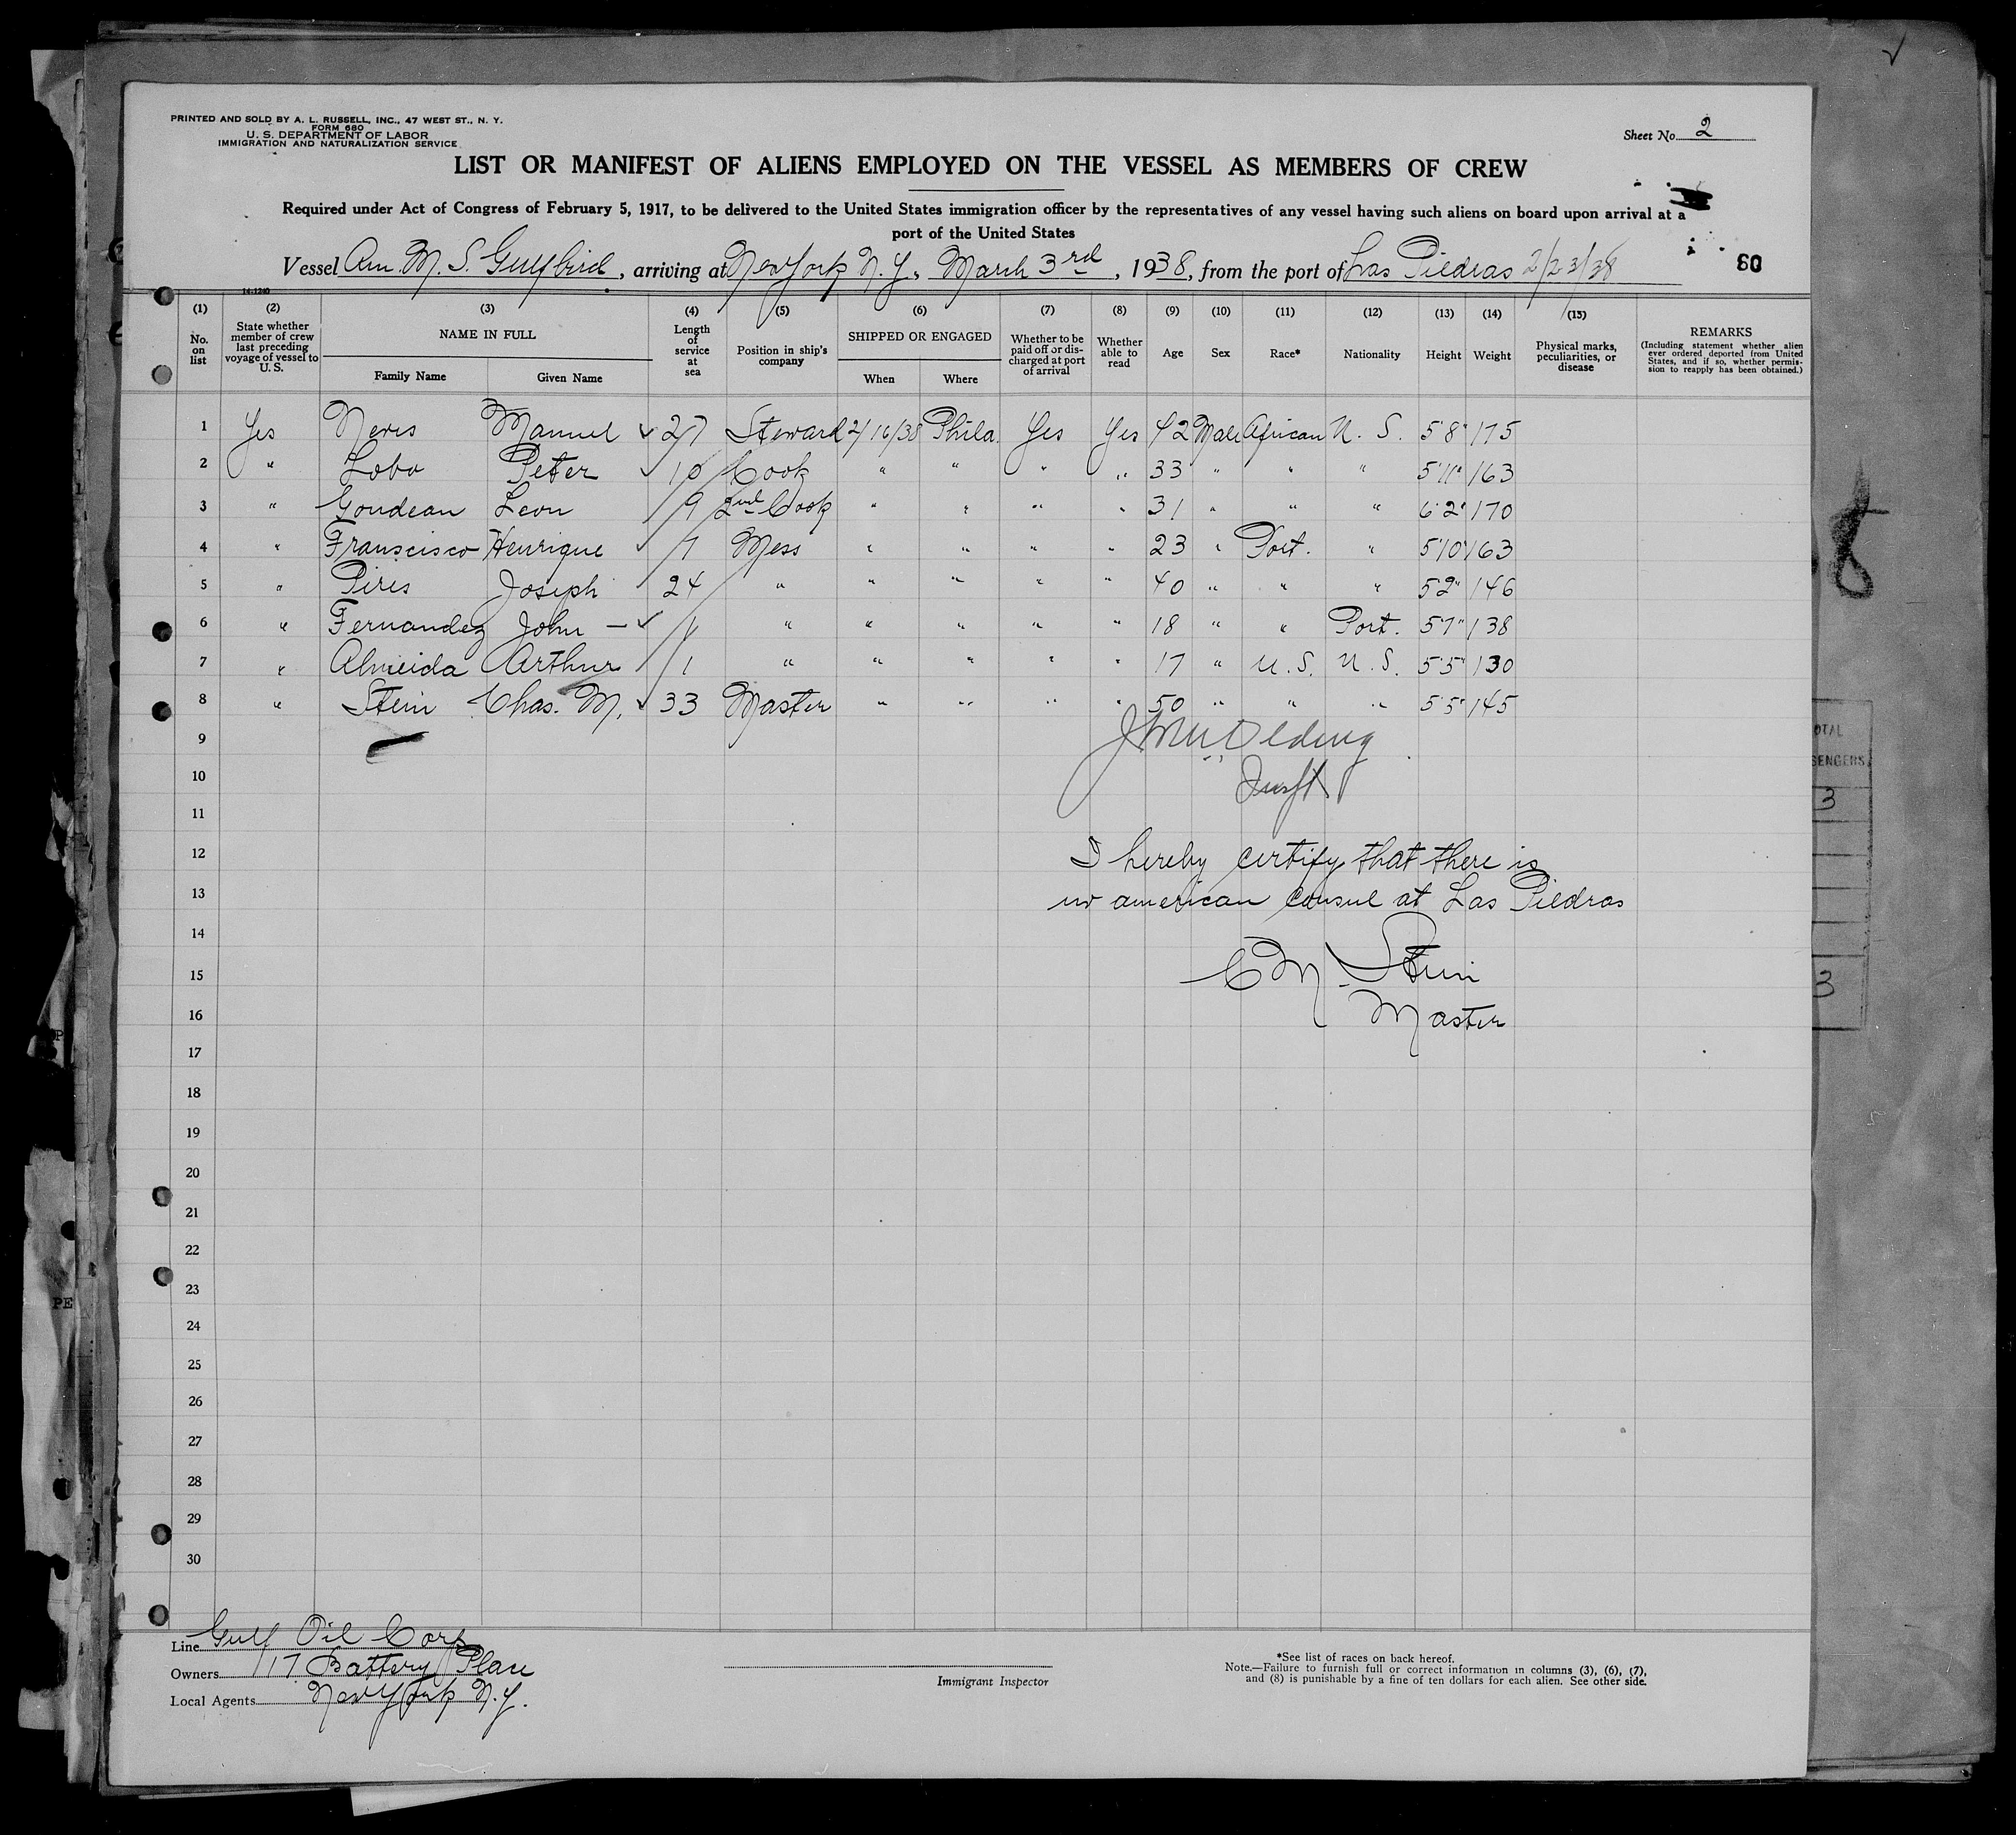 PRINTED AND SOLD BY A. L. RUSSELL, INC., 47 WEST ST., N. Y.
FORM 680
U. S. DEPARTMENT OF LABOR
IMMIGRATION AND NATURALIZATION SERVICE
Sheet No. 2
LIST OR MANIFEST OF ALIENS EMPLOYED ON THE VESSEL AS MEMBERS OF CREW
Required under Act of Congress of February 5, 1917, to be delivered to the United States immigration officer by the representatives of any vessel having such aliens on board upon arrival at a
port of the United States
Vessel Am. M. S. Gulfbird, arriving at New York N. Y., March 3rd, 1938, from the port of Las Piedras 2/23/38
60
14-1240
(1) (2) (3) (4) (5) (6) (7) (8) (9) (10) (11) (12) (13) (14) (15)
No. on list
State whether member of crew last preceding voyage of vessel to U. S.
NAME IN FULL
Family Name
Given Name
Length of service at sea
Position in ship's company
SHIPPED OR ENGAGED
When
Where
Whether to be paid off or discharged at port of arrival
Whether able to read
Age
Sex
Race*
Nationality
Height
Weight
Physical marks, peculiarities, or disease
REMARKS
(Including statement whether alien ever ordered deported from United States, and if so, whether permission to reapply has been obtained.)
1 Yes Neves Manuel ✓ 27 Steward 2/16/38 Phila. Yes Yes 42 Male African U. S. 5'8" 175
2 " Lobo Peter ✓ 10 Cook " " " " 33 " " " 5'11" 163
3 " Goudeau Leon 9 2nd Cook " " " " 31 " " " 6'2" 170
4 " Franscisco Henrique ✓ 7 Mess " " " " 23 " Port. " 5'10" 163
5 " Pires Joseph ✓ 24 " " " " " 40 " " " 5'2" 146
6 " Fernandez John — ✓ 1 " " " " " 18 " " Port. 5'7" 138
7 " Almeida Arthur 1 " " " " " 17 " U. S. U. S. 5'5" 130
8 " Stein Chas. M. ✓ 33 Master " " " " 50 " " " 5'5" 145
9
10
11
12 I hereby certify that there is
13 no american consul at Las Piedras
14
15 C M. Stein
16 Master
17
18
19
20
21
22
23
24
25
26
27
28
29
30
Line Gulf Oil Corp
Owners 17 Battery Place
Local Agents New York N. Y.
Immigrant Inspector
*See list of races on back hereof.
Note.—Failure to furnish full or correct information in columns (3), (6), (7),
and (8) is punishable by a fine of ten dollars for each alien. See other side.
3
3
8
PE